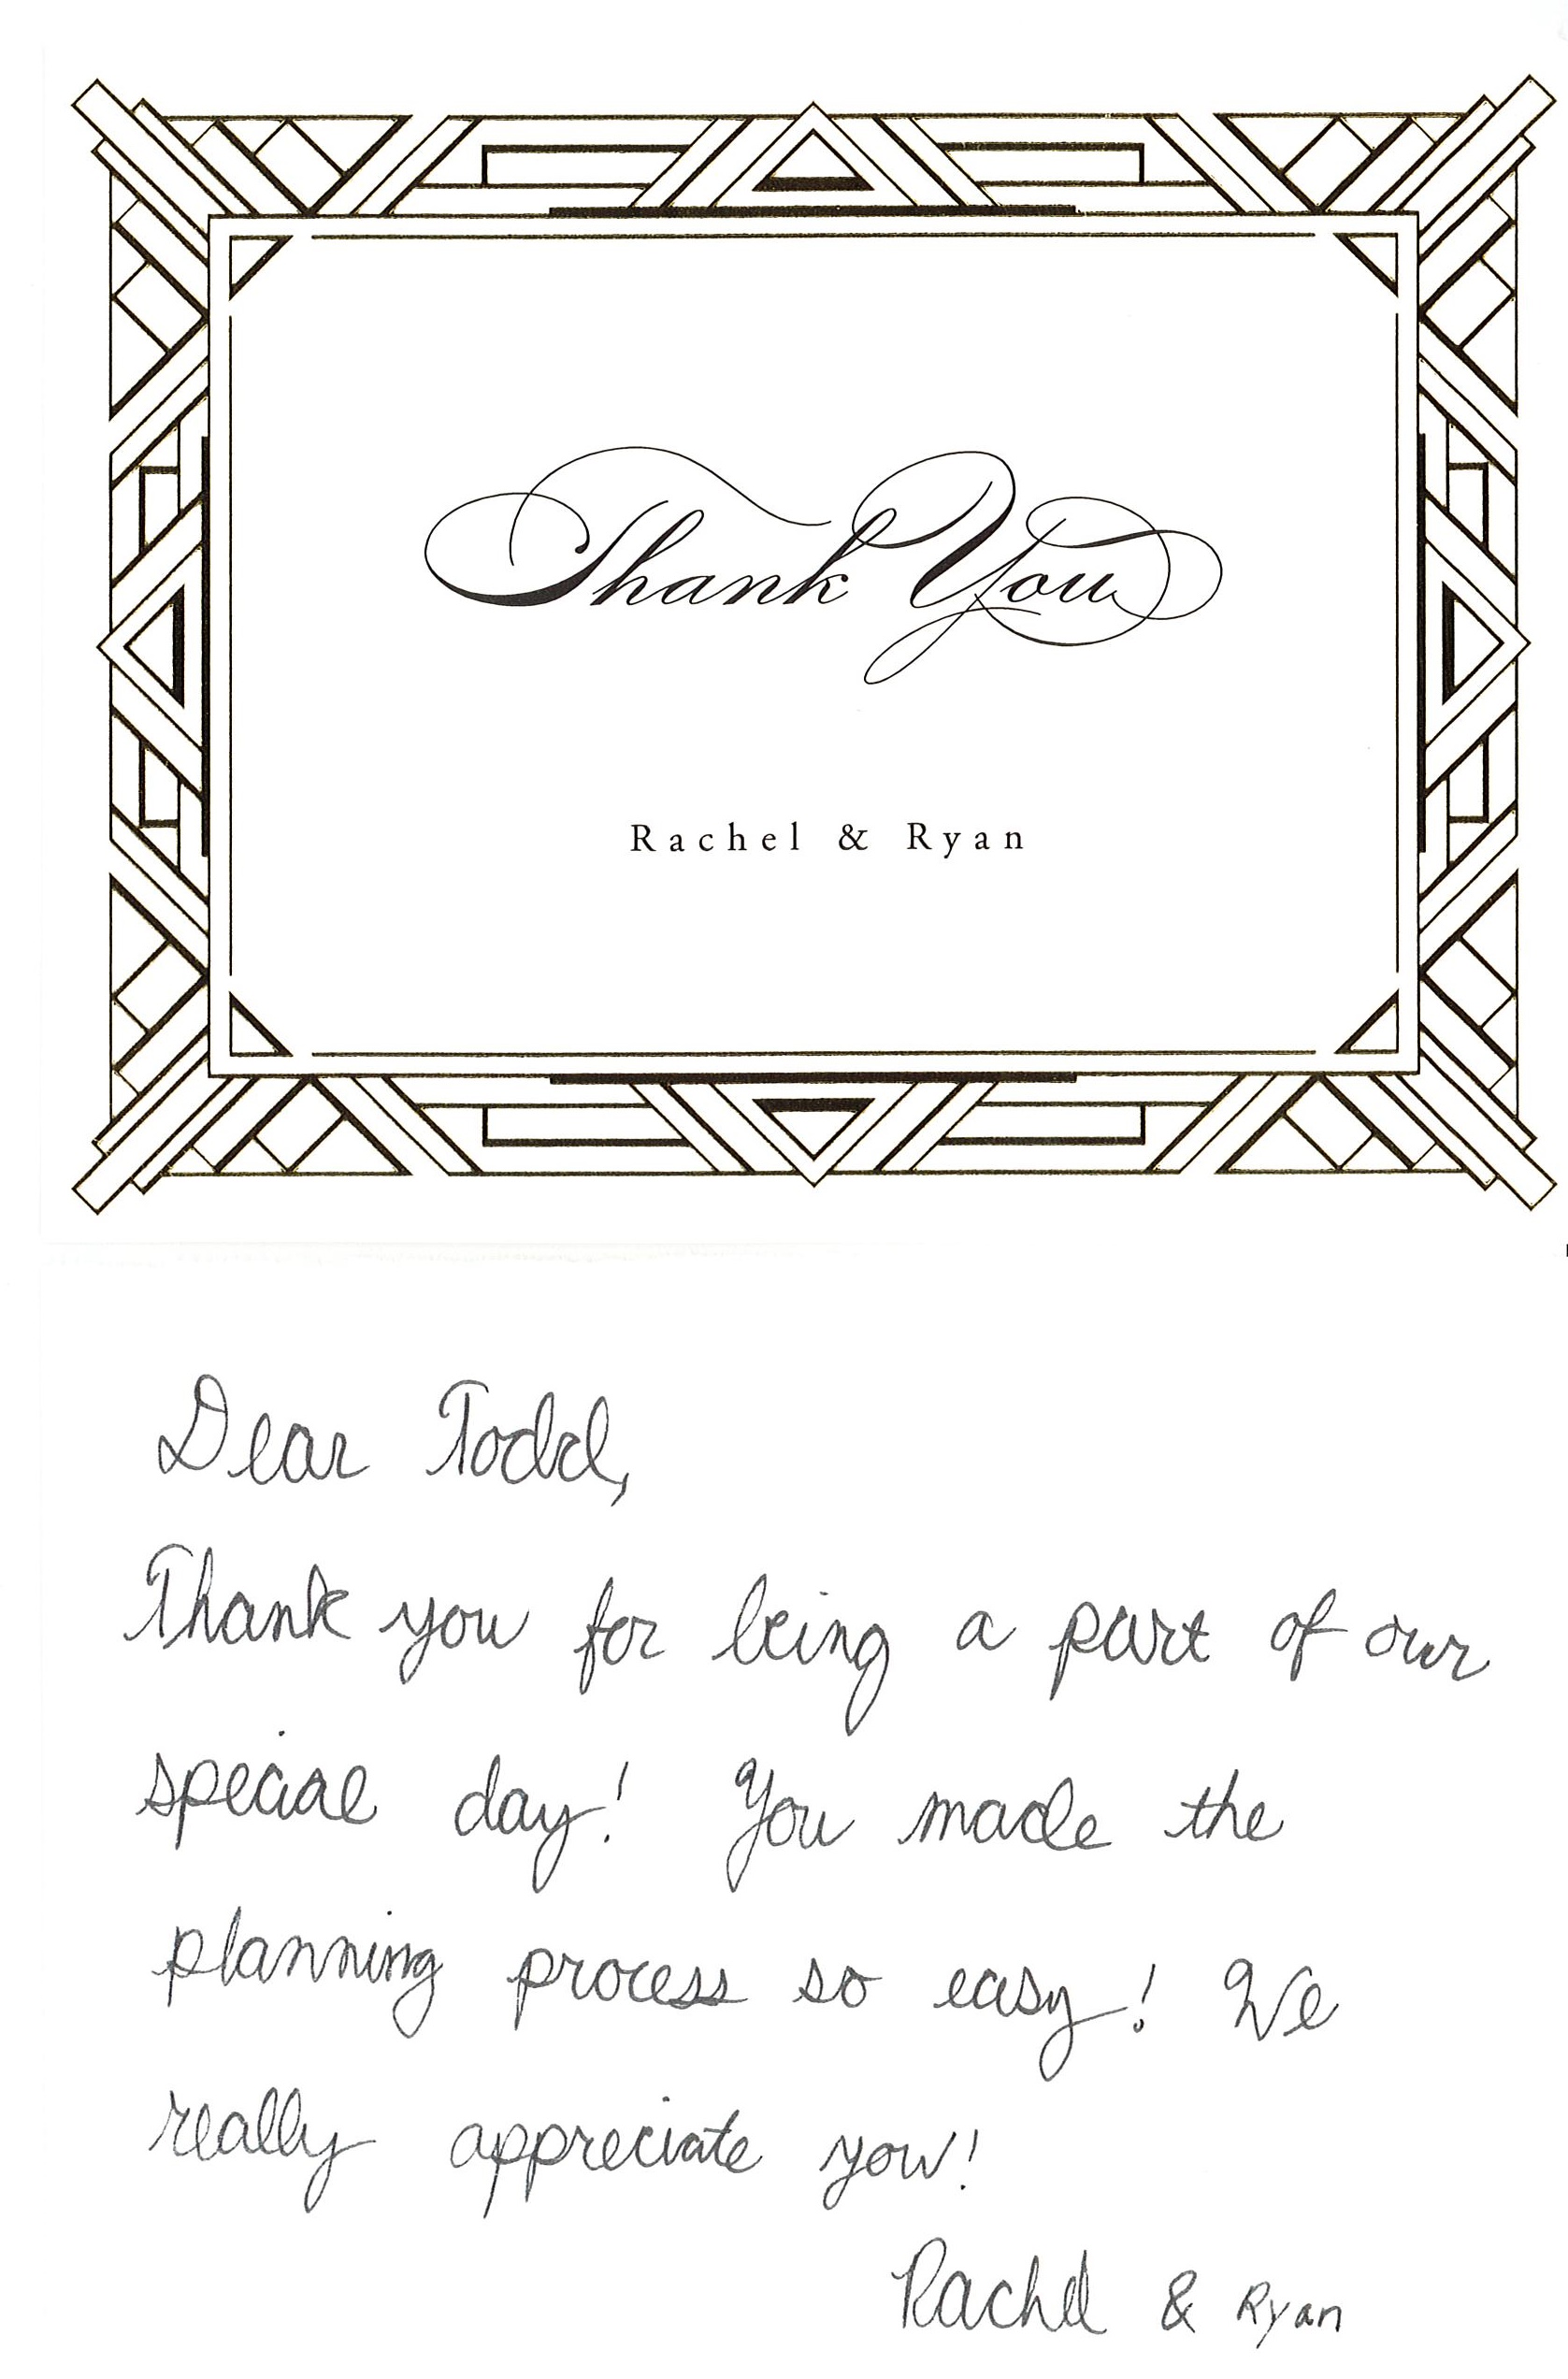 Thank You
Rachel & Ryan
Dear Todd,
Thank you for being a part of our
special day! You made the
planning process so easy! We
really appreciate you!
Rachel & Ryan